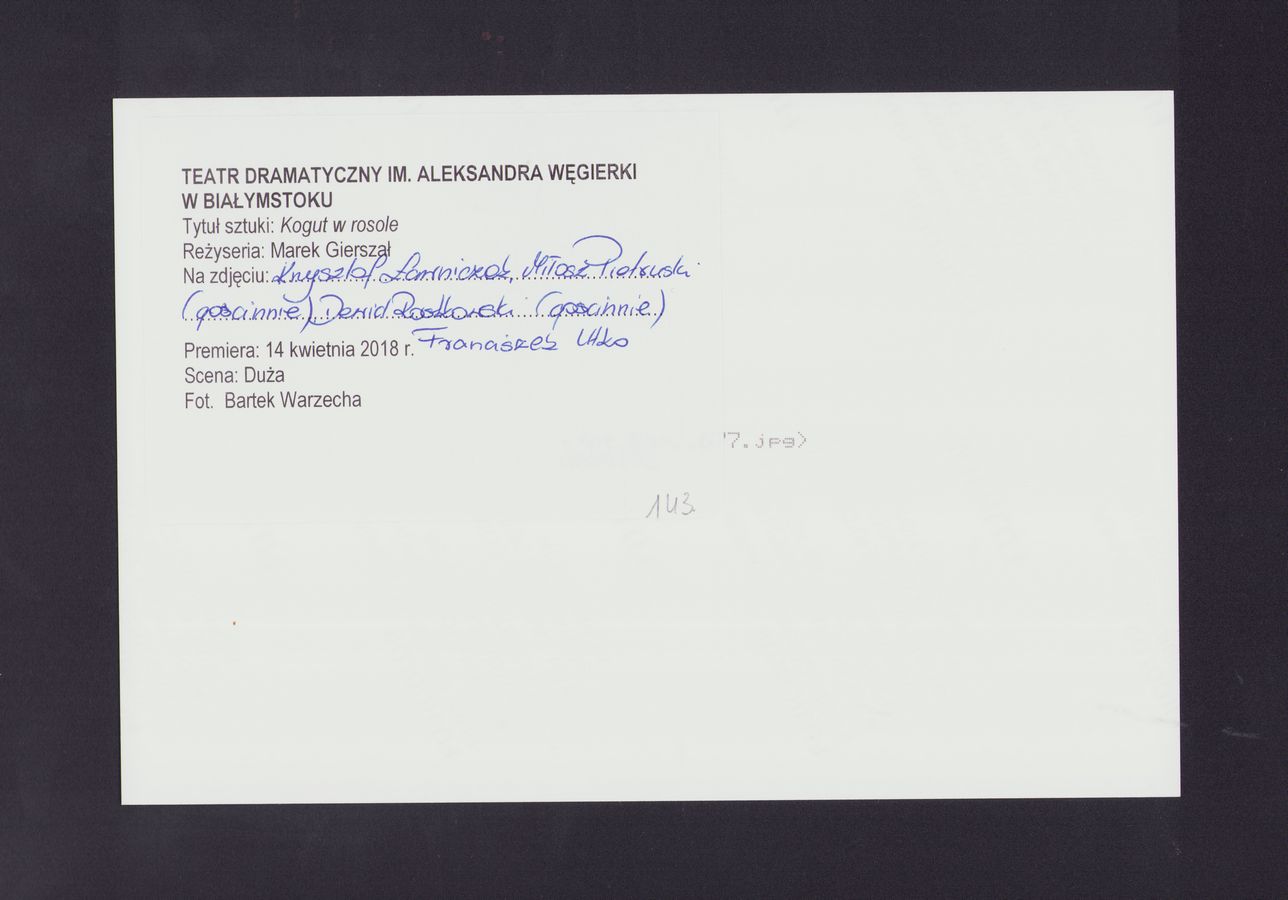 TEATR DRAMATYCZNY IM. ALEKSANDRA WĘGIERKI
W BIAŁYMSTOKU
Tytuł sztuki: Kogut w rosole
Reżyseria: Marek Gierszał
Na zdjęciu: Krzysztof Ławniczak, Miłosz Pietruski
(gościnnie), Dawid Rostkowski (gościnnie)
Franciszek Utko
Premiera: 14 kwietnia 2018 r.
Scena: Duża
Fot. Bartek Warzecha
7.jpg)
143